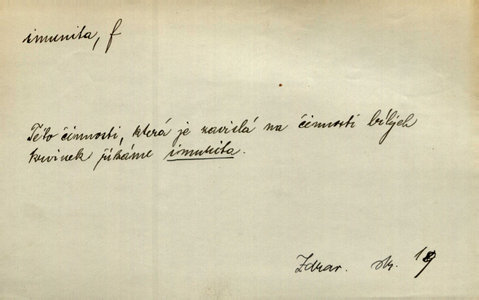 imunita, f
Této činnosti, která je zavislá na činnosti bílých
krvinek říkáme imunita.
Zdrav. str. 19